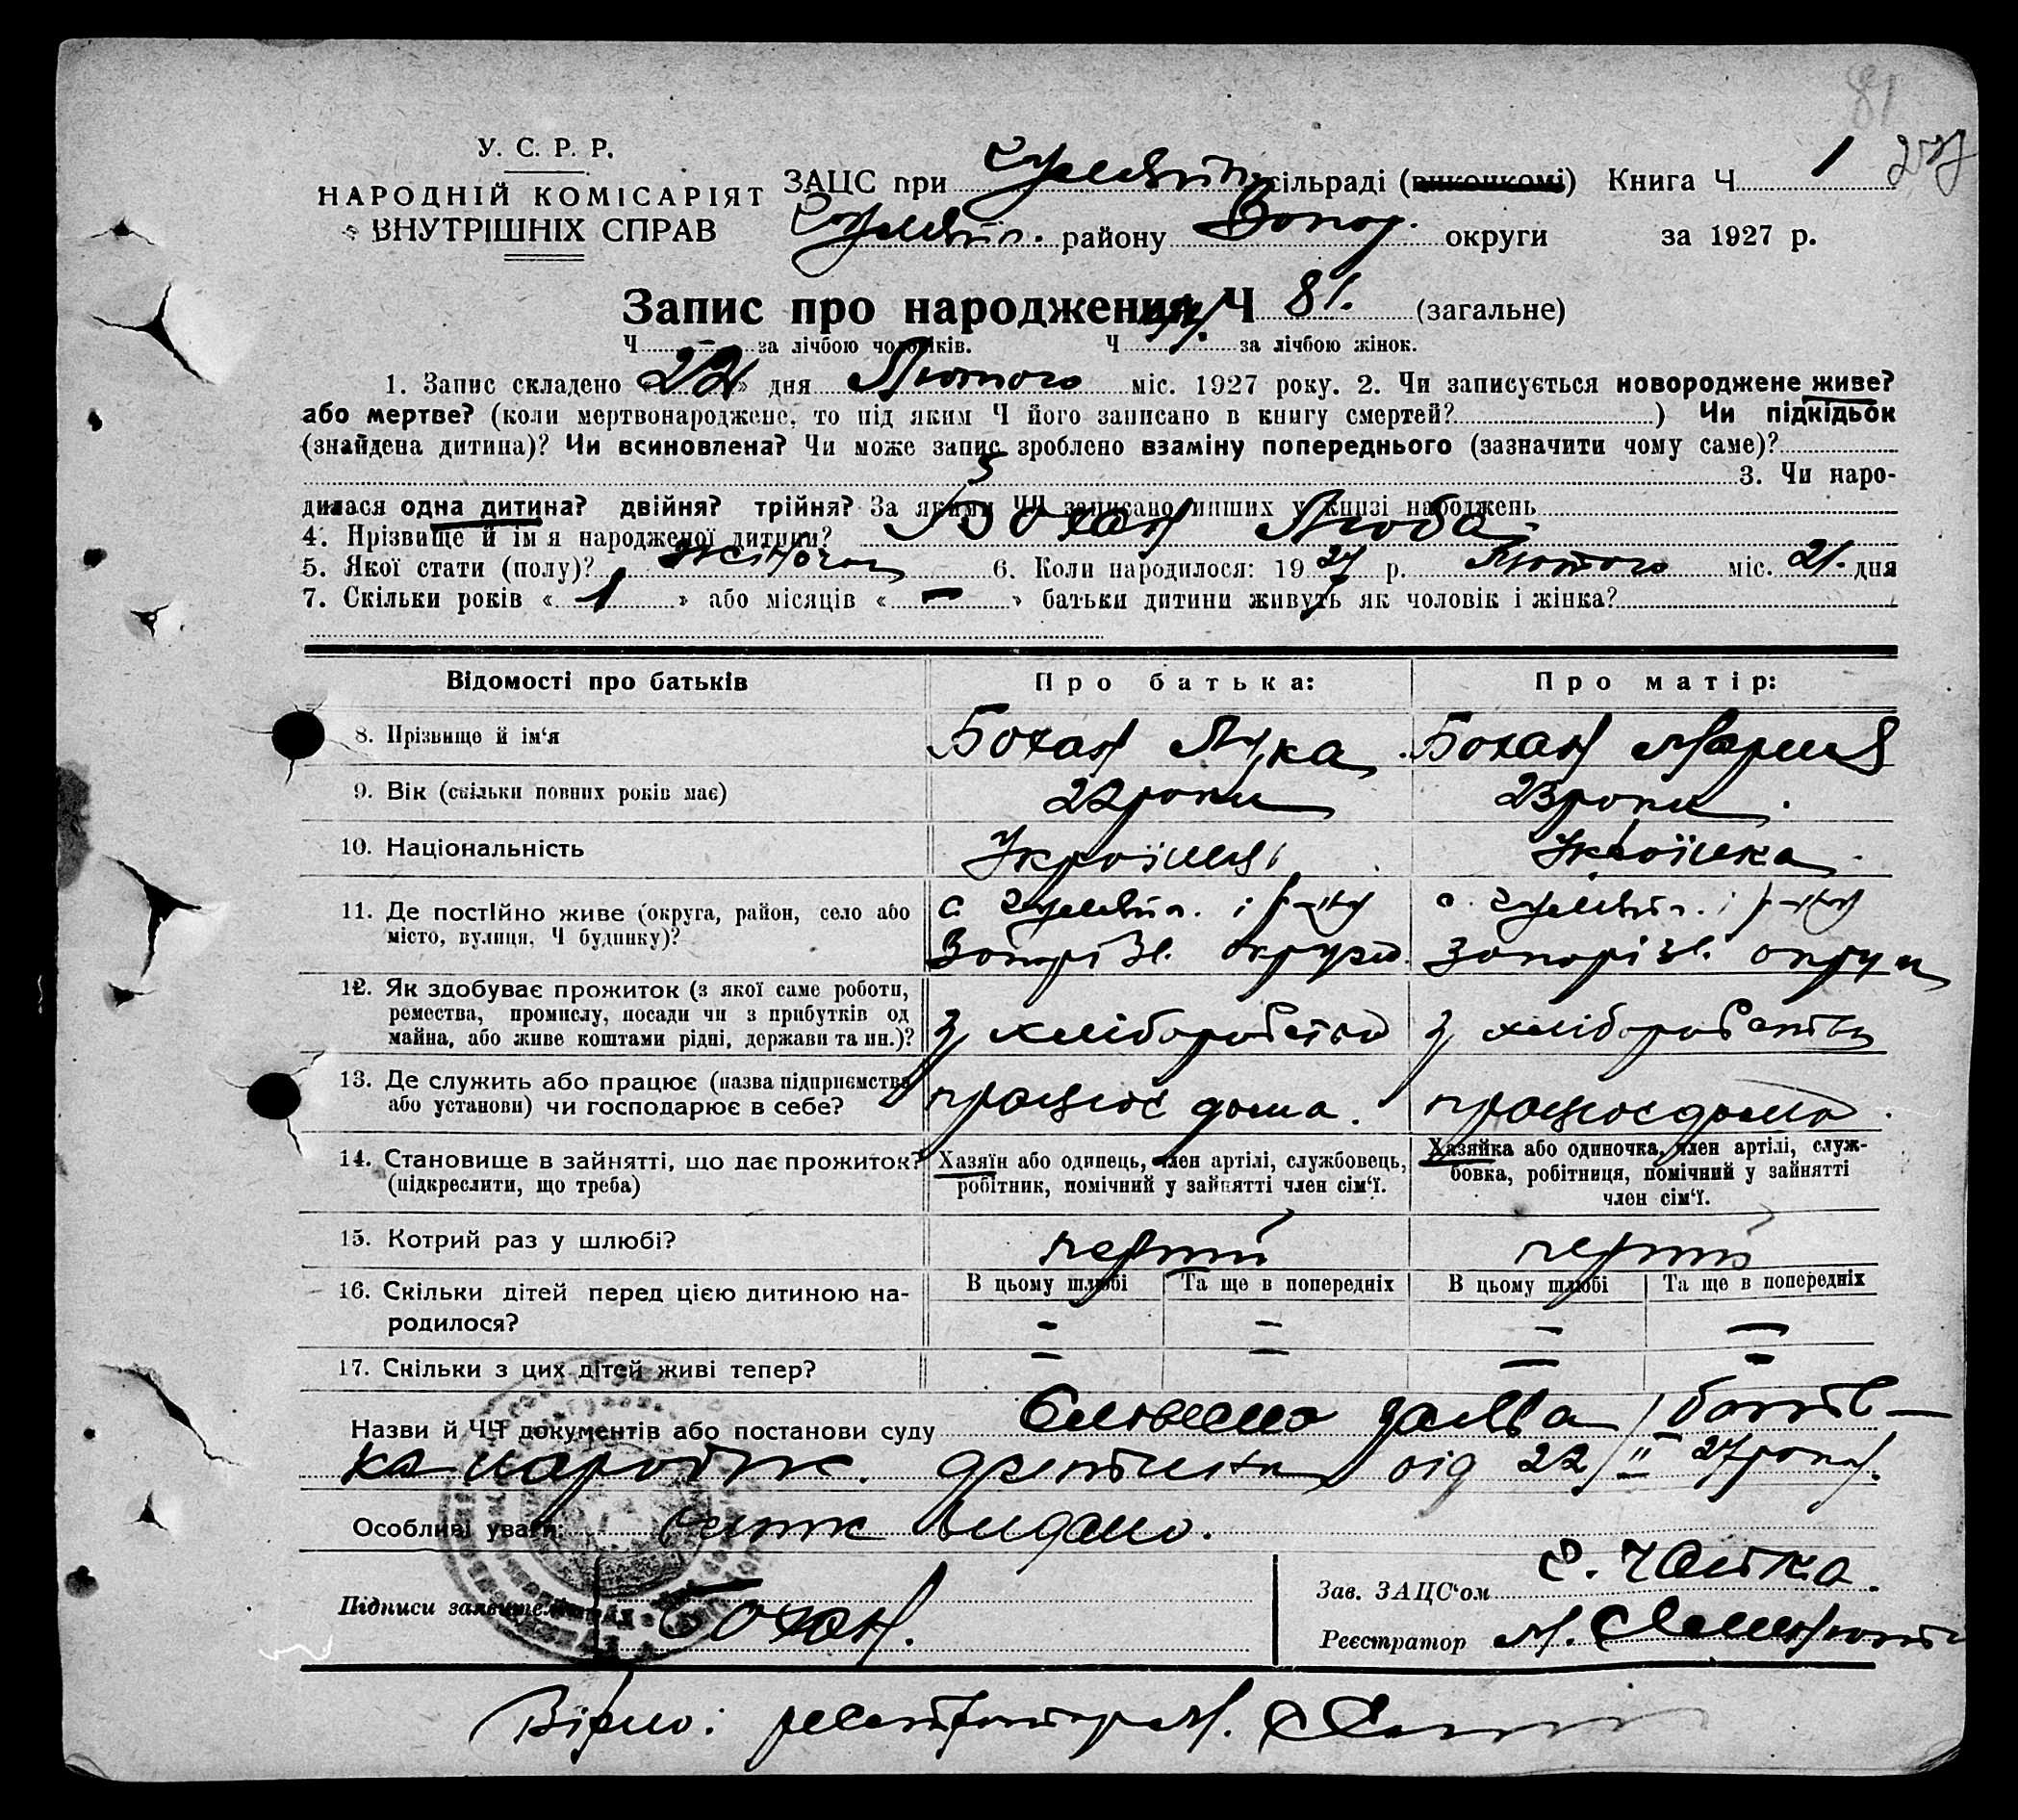 81
У. С. Р. Р.
НАРОДНІЙ КОМІСАРІЯТ
ВНУТРІШНІХ СПРАВ
ЗАЦС при сільраді (виконкомі) Книга Ч 1
району Запор. округи за 1927 р.
Запис про народження Ч 81. (загальне)
Ч - за лічбою чоловіків. Ч за лічбою жінок.
1. Запис складено «22» дня Лютого міс. 1927 року. 2. Чи записується новороджене живе?
або мертве? (коли мертвонароджене, то під яким Ч його записано в книгу смертей? ) Чи підкідьок
(знайдена дитина)? Чи всиновлена? Чи може запис зроблено взаміну попереднього (зазначити чому саме)?
3. Чи наро-
дилася одна дитина? двійня? трійня? За якими ЧЧ записано инших у книзі народжень
4. Прізвище й ім'я народженої дитини? Бохан Люба
5. Якої стати (полу)? жіночої 6. Коли народилося: 1927 р. Лютого міс. 21. дня
7. Скільки років « 1 » або місяців « - » батьки дитини живуть як чоловік і жінка?
Відомості про батьків Про батька: Про матір:
8. Прізвище й ім'я Бохан Лука Бохан Мария
9. Вік (скільки повних років має) 22 роки 23 роки.
10. Національність Українець Українка
11. Де постійно живе (округа, район, село або с. і р-ну с. і р-ну
місто, вулиця, Ч будинку)? Запорізь. округи Запорізь. округи
12. Як здобуває прожиток (з якої саме роботи,
ремества, промислу, посади чи з прибутків од з хліборобства з хліборобства
майна, або живе коштами рідні, держави та ин.)?
13. Де служить або працює (назва підприємства
або установи) чи господарює в себе? працює дома. працює дома.
14. Становище в зайнятті, що дає прожиток? Хазяїн або одинець, член артілі, службовець, Хазяйка або одиночка, член артілі, служ-
(підкреслити, що треба) робітник, помічний у зайнятті член сім'ї. бовка, робітниця, помічний у зайнятті
член сім'ї.
15. Котрий раз у шлюбі? перший перший
16. Скільки дітей перед цією дитиною на- В цьому шлюбі Та ще в попередніх В цьому шлюбі Та ще в попередніх
родилося? - - - -
17. Скільки з цих дітей живі тепер? - - - -
Назви й ЧЧ документів або постанови суду Словесна заява батьь-
ка народж. дитини від 22/II 27 року.
Особливі уваги: видано.
Підписи заявителів Бохан.
Зав. ЗАЦС'ом
Реєстратор М.
Вірно: реєстратор М.